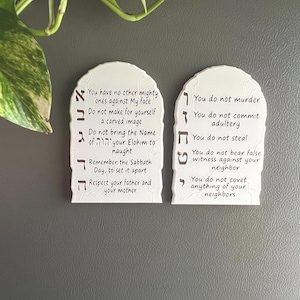 א You have no other mighty
ones against My face
ב Do not make for yourself
a carved image
ג Do not bring the Name
of יהוה your Elohim to
naught
ד Remember the Sabbath
Day, to set it apart
ה Respect your father and
your mother
ו You do not murder
ז You do not commit
adultery
ח You do not steal
ט You do not bear false
witness against your
neighbor
י You do not covet
anything of your
neighbors